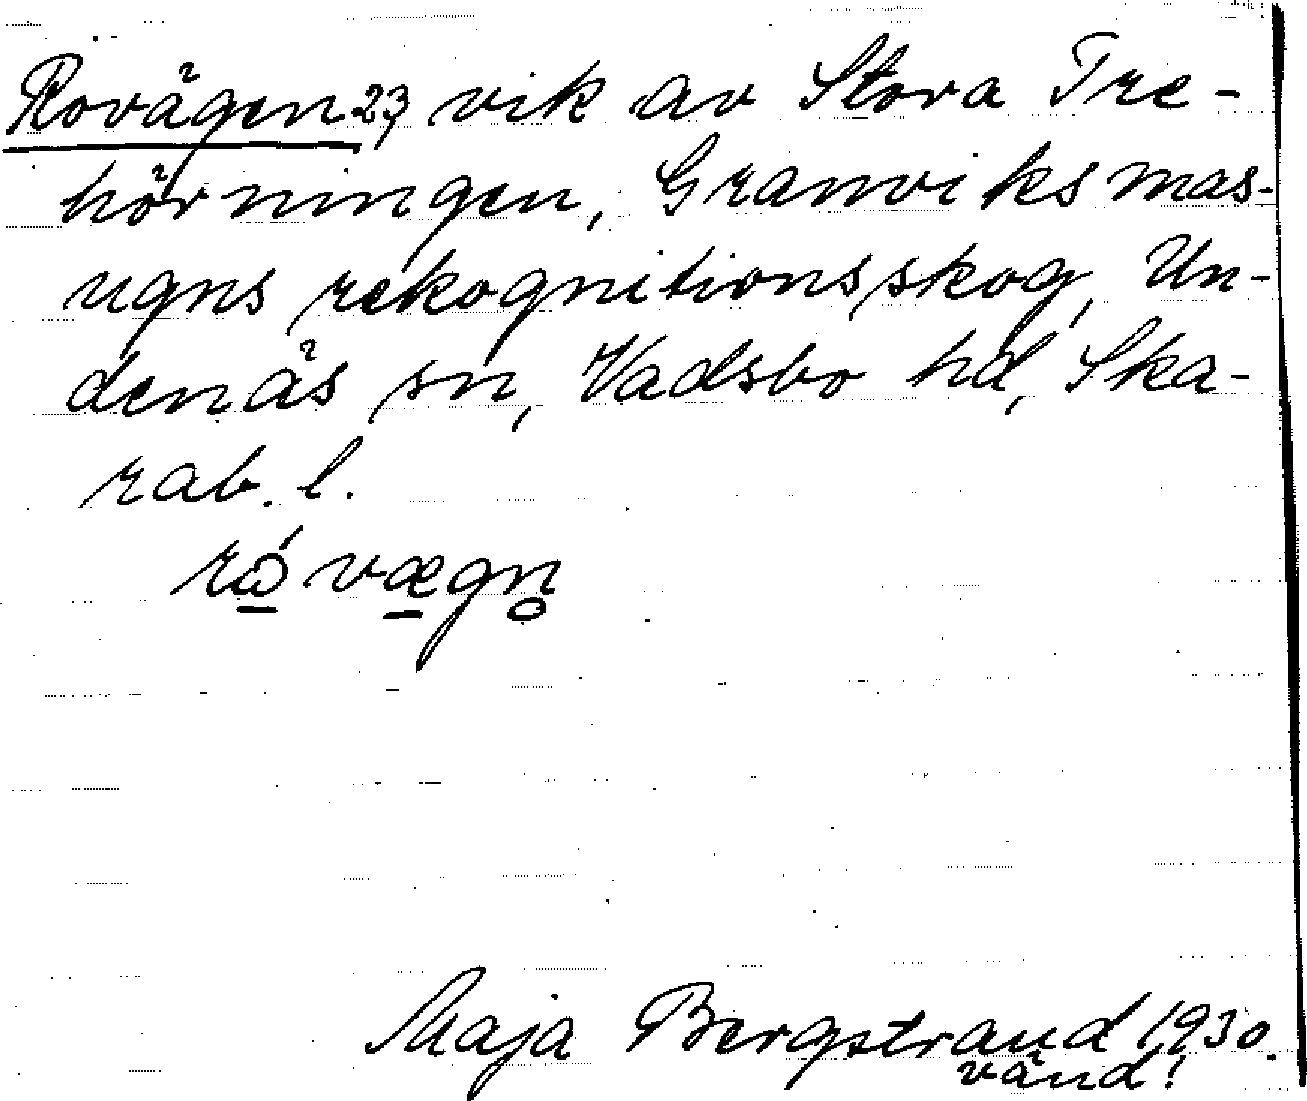 Rovägen 23, vik av Stora Tre-
hörningen, Granviks mas-
ugns rekognitionsskog, Un-
denäs sn, Vadsbo hd, Ska-
rab. l.
vægn̥
Maja Bergstrand 1930.
vänd!